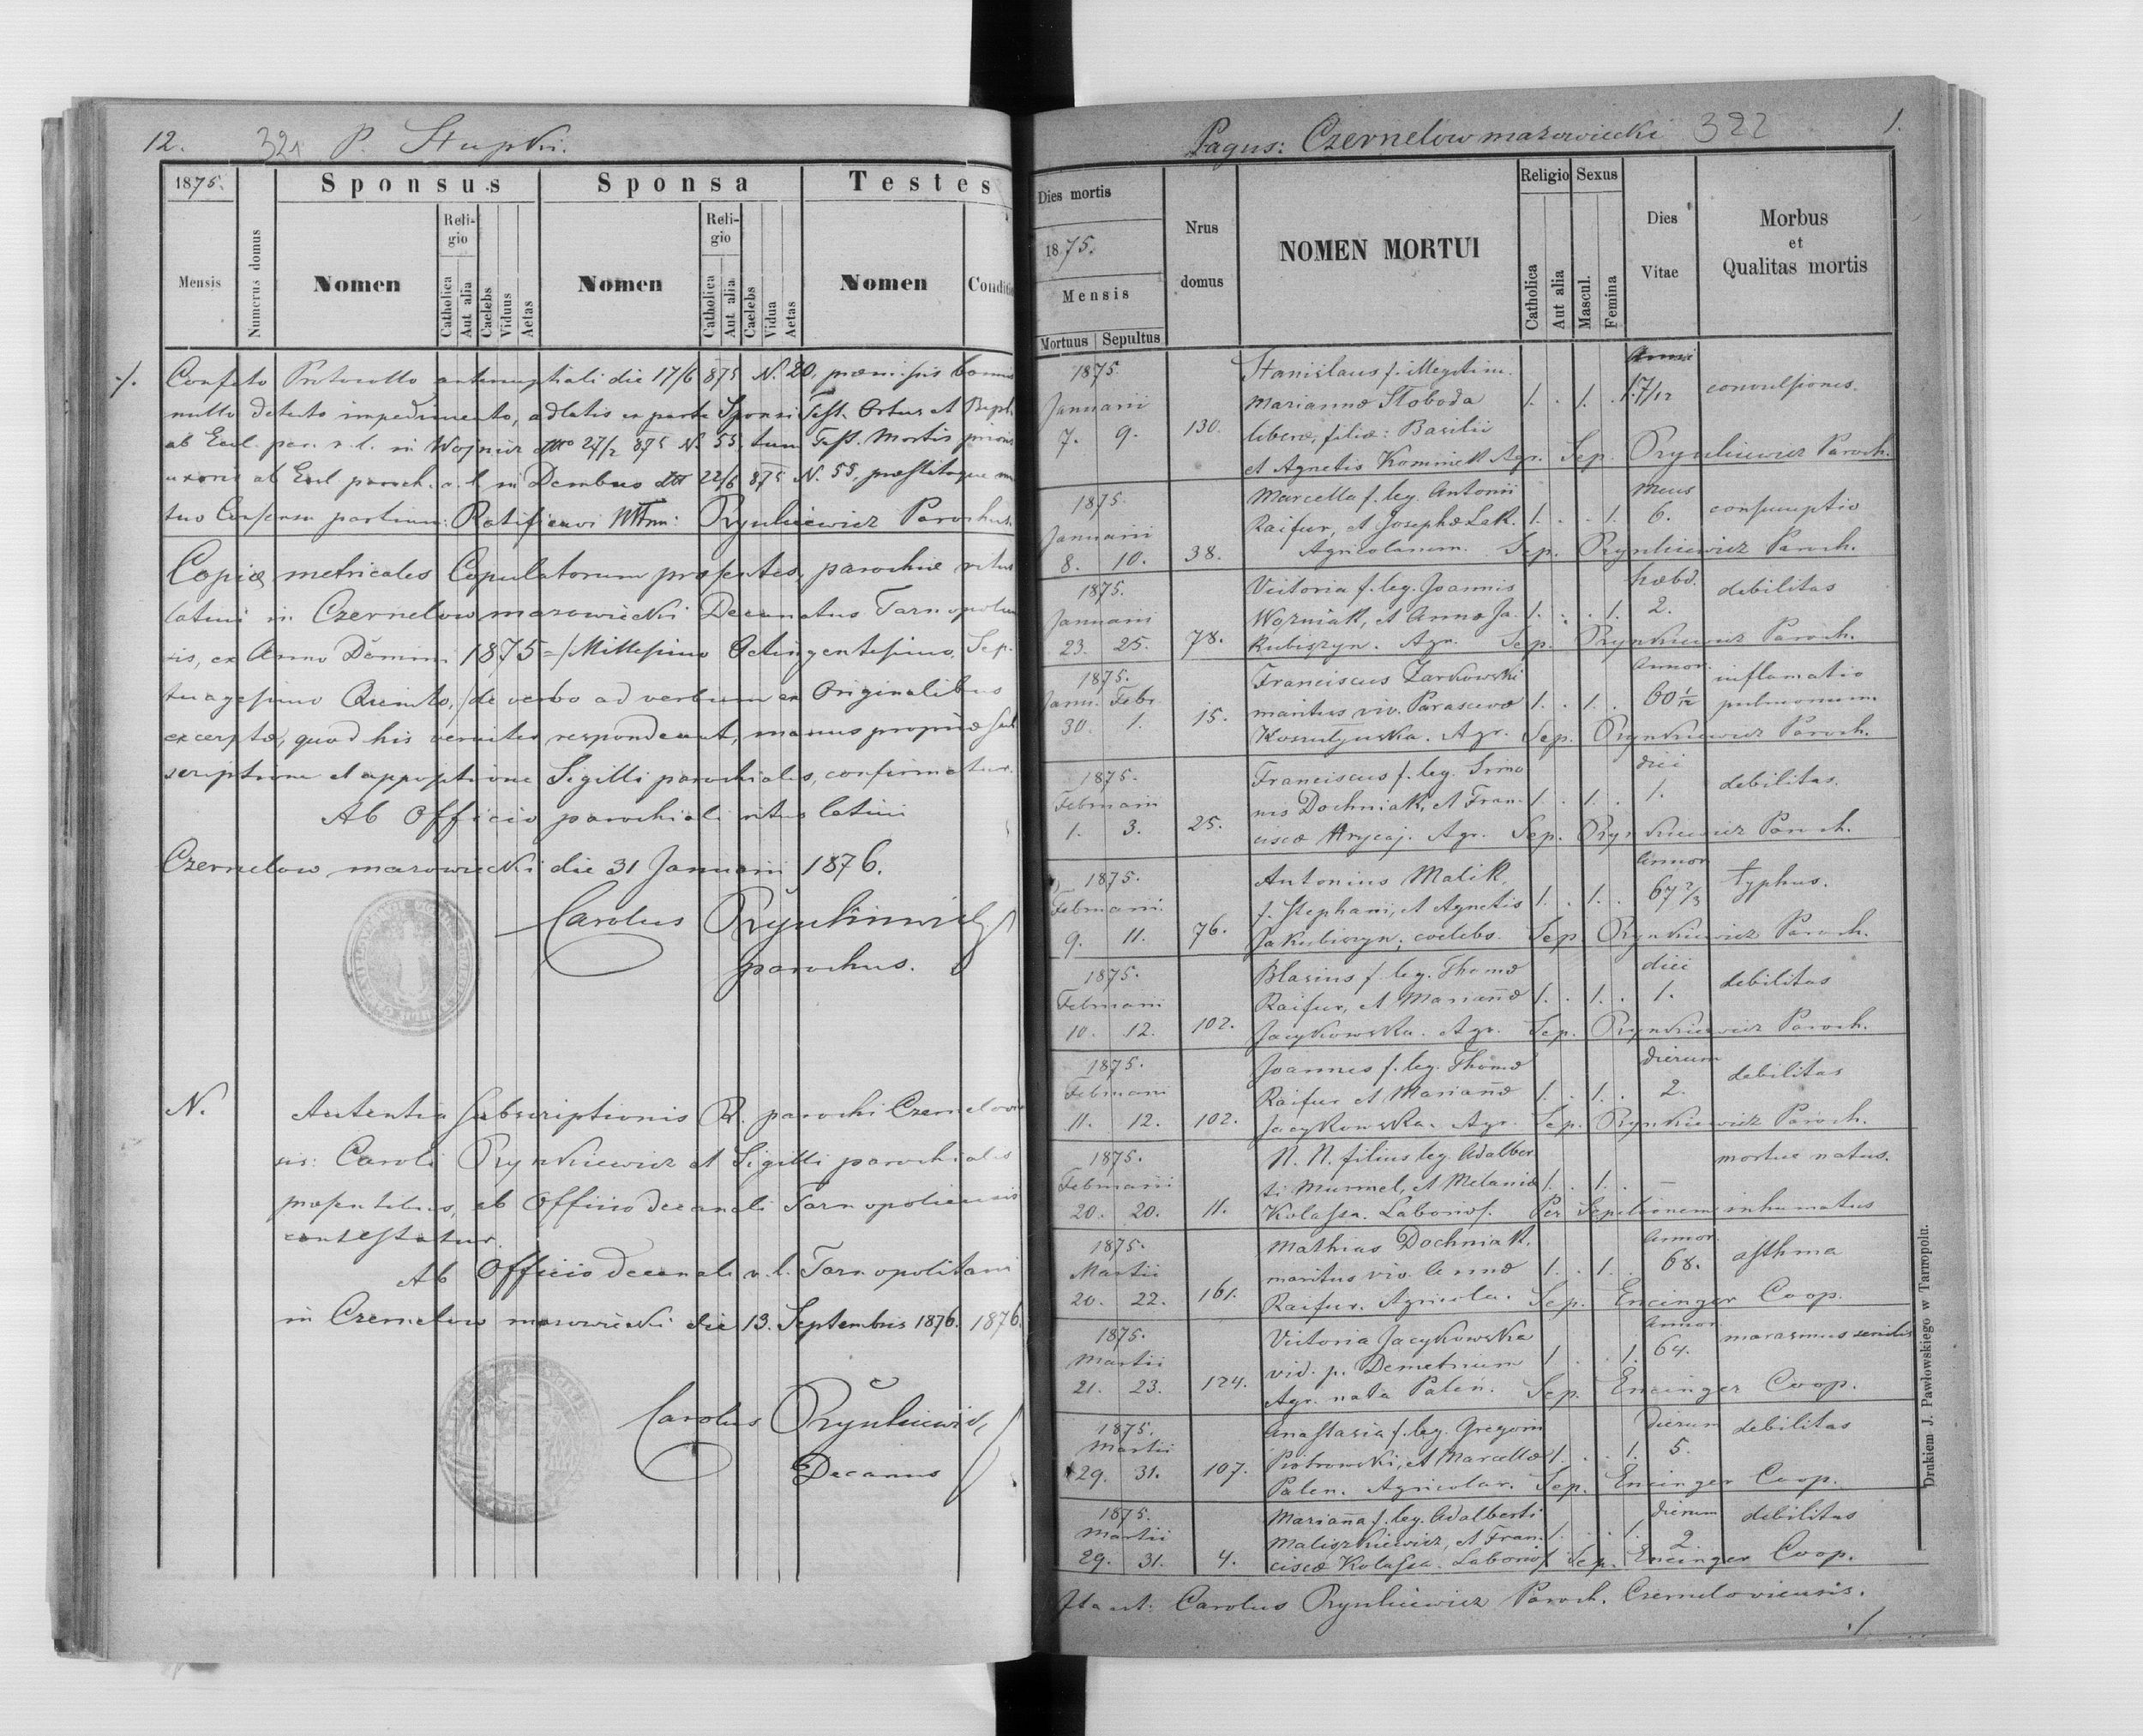 12. 321 P. Stupki.
1875.
Sponsus
Sponsa
Testes
Mensis
Numerus domus
Nomen
Religio
Catholica
Aut alia
Caelebs
Viduus
Aetas
Nomen
Religio
Catholica
Aut alia
Caelebs
Vidua
Aetas
Nomen
Conditio
./. Confecto Protocollo antenuptiali die 17/6 875 N. 20. præmissis bannis
nullo detecto impedimento, adlatis ex parte Sponsi Test. Ortus et Bapt.
ab Eccl. par. r. l. in Wojnicz 27/2 875 N. 55, tum Test. Mortis prioris
uxoris ab Eccl. paroch. r. l. in Dembno 22/6 875 N. 55, præstitoque mu
tuo Consensu partium: Ratificavi Mtrm: Rynkiewicz Parochus.
Copiæ metricales Copulatorum præsentes, parochiæ ritus
latini in Czernelow mazowiecki Decanatus Tarnopolien
sis, ex Anno Domini 1875 = /Millesimo Octingentesimo Sep-
tuagesimo Quinto,/ de verbo ad verbum ex Originalibus
excerptæ, quod his veraciter respondeant, manus propriæ sub
scriptione et appositione Sigilli parochialis, confirmatur.
Ab Officio parochiali ritus latini
Czernelow mazowiecki die 31 Januarii 1876.
Carolus Rynkiewicz
parochus.
N. Autentia subscriptionis R. parochi Czernelovien
sis: Caroli Rynkiewicz et Sigilli parochialis
præsentibus, ab Officio decanali Tarnopoliensis
contestatur.
Ab Officio decanali r. l. Tarnopolitani
in Czernelow mazowiecki die 13. Septembris 1876. 1876.
Carolus Rynkiewicz
Decanus
Pagus: Czernelow mazowiecki 322 1.
Dies mortis
1875.
Mensis
Mortuus
Sepultus
Nrus
domus
NOMEN MORTUI
Religio
Catholica
Aut alia
Sexus
Mascul.
Femina
Dies
Vitae
Morbus
et
Qualitas mortis
1875. Stanislaus f. illegitim.
Januarii Mariannæ Słoboda 1. . 1. . 1 7/12 convulsiones.
7. 9. 130. liberæ, filiæ: Basilii
et Agnetis Kominek Agr. Sep. Rynkiewicz Paroch.
1875. Marcella f. leg. Antonii mens
Januarii Raifur, et Josephæ Łak. 1. . . 1. 6. consumptio
8. 10. 38. Agricolarum. Sep. Rynkiewicz Paroch.
1875. Victoria f. leg. Joannis hæbd. debilitas
Januarii Wozniak, et Annæ Ja- 1. . . 1. 2.
23. 25. 78. kubiszyn. Agr. Sep. Rynkiewicz Paroch.
1875. Franciscus Żarkowski annor. inflamatio
Janu. Febr. maritus viv. Parascevæ 1. . 1. . 60 1/12 pulmonum
30. 1. 15. Agr. Sep. Rynkiewicz Paroch.
1875. Franciscus f. leg. Simo diei
Februarii nis Dochniak, et Fran- 1. . 1. . 1. debilitas.
1. 3. 25. ciscæ Hrycaj. Agr. Sep. Rynkiewicz Paroch.
1875. Antonius Malik, annor
Februarii f. Stephani, et Agnetis 1. . 1. . 67 2/3 typhus.
9. 11. 76. Jakubiszyn, coelebs. Sep. Rynkiewicz Paroch.
1875. Blasius f. leg. Thomæ diei
Februarii Raifur, et Mariannæ 1. . 1. . 1. debilitas
10. 12. 102. Jacykowska. Agr. Sep. Rynkiewicz Paroch.
1875. Joannes f. leg. Thomæ dierum
Februarii Raifur et Mariannæ 1. . 1. . 2. debilitas
11. 12. 102. Jacykowska. Agr. Sep. Rynkiewicz Paroch.
1875. N. N. filius leg. Adalber mortuus natus.
Februarii ti Murmel, et Melaniæ 1. . 1. . —
20. 20. 11. Kolassa. Laborios. Per Sepultionem inhumatus
1875. Mathias Dochniak, annor.
Martii maritus viv. Annæ 1. . 1. . 68. asthma
20. 22. 161. Raifur. Agricola. Sep. Encinger Coop.
1875. Victoria Jacykowska annor. marasmus senilis
Martii vid. p. Demetrium 1 . . 1. 64.
21. 23. 124. Agr. nata Paleń. Sep. Encinger Coop.
1875. Anastasia f. leg. Gregorii dierum debilitas
Martii Piotrowski, et Marcellæ 1. . . 1. 5.
29. 31. 107. Palen. Agricolar. Sep. Encinger Coop.
1875. Marianna f. leg. Adalberti dierum debilitas
Martii Maliszkiewicz, et Fran- 1. . . 1. 2.
29. 31. 4. ciscæ Kolassa. Laborios. Sep. Encinger Coop.
Ita est: Carolus Rynkiewicz Paroch. Czerneloviensis.
./.
Drukiem J. Pawłowskiego w Tarnopolu.